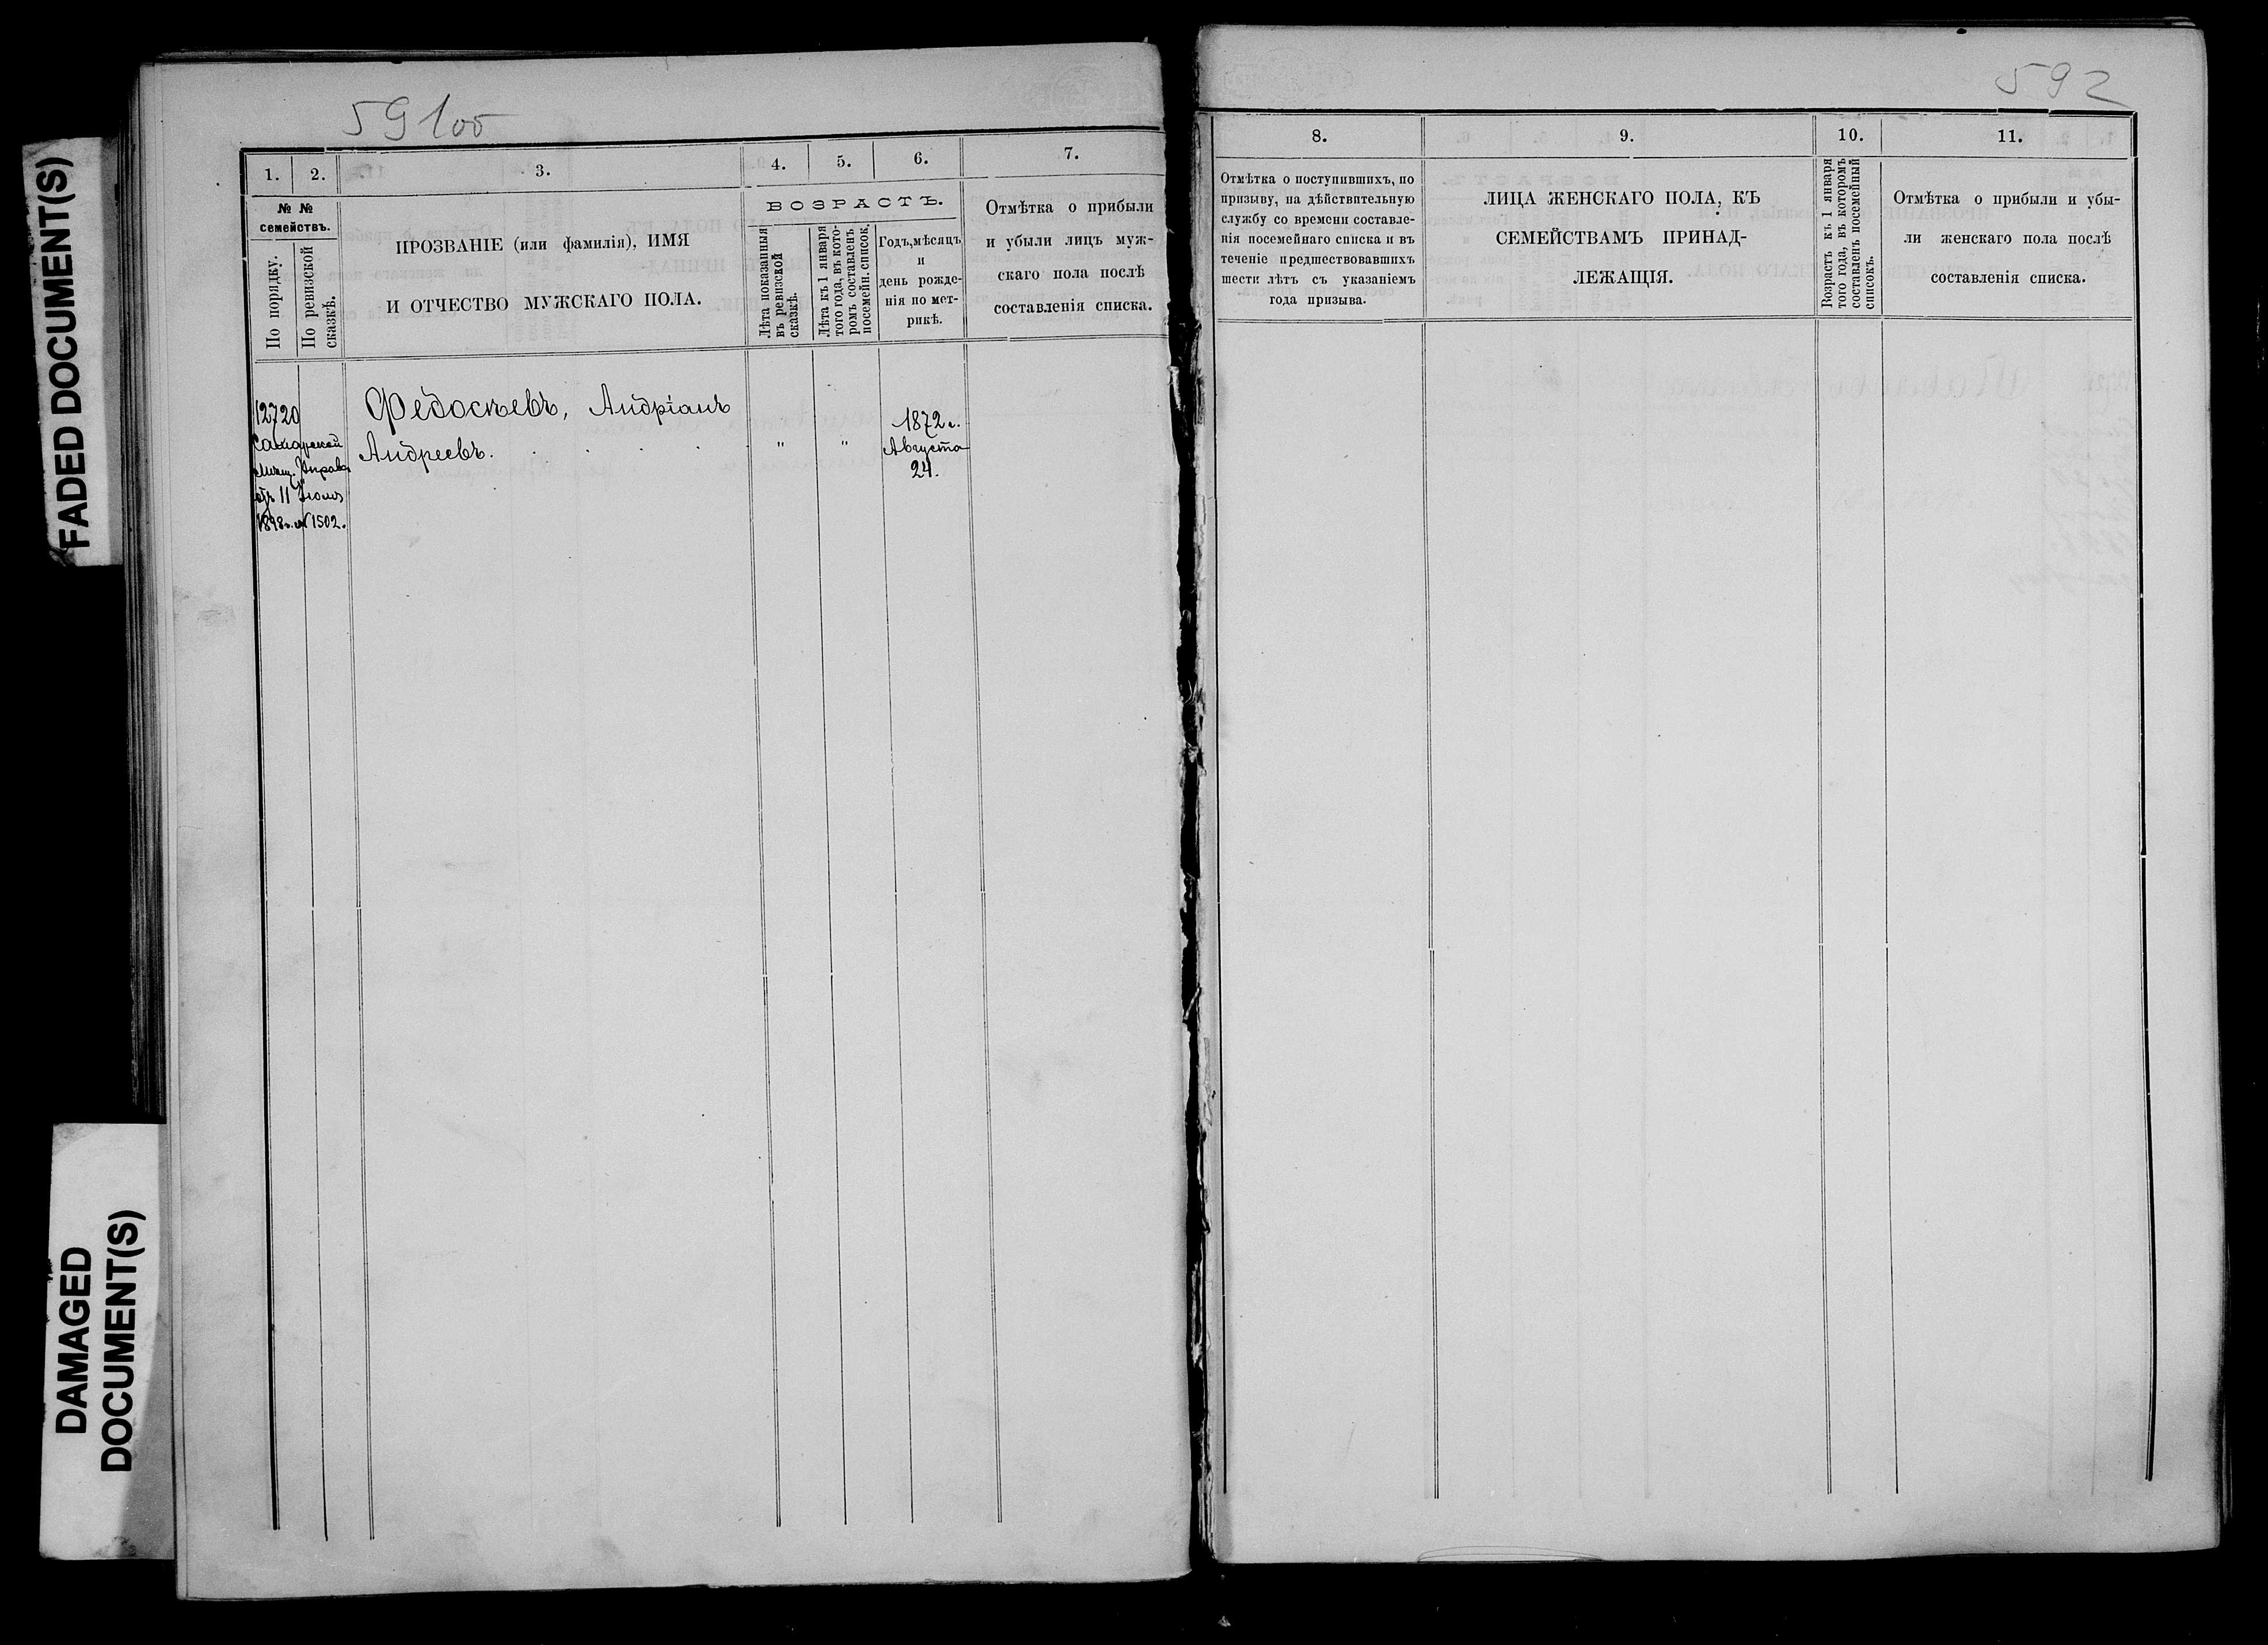 FADED DOCUMENT(S)
DAMAGED
DOCUMENT(S)
591об
1.
2.
3.
4.
5.
6.
7.
№ №
семействъ.
По порядку.
По ревизской
сказкѣ.
ПРОЗВАНІЕ (или фамилія), ИМЯ
И ОТЧЕСТВО МУЖСКАГО ПОЛА.
ВОЗРАСТЪ.
Лѣта показанныя
въ ревизской
сказкѣ.
Лѣта къ 1 января
того года, въ кото-
ромъ составленъ
посемейн. список.
Годъ, мѣсяцъ
и
день рожде-
нія по мет-
рикѣ.
Отмѣтка о прибыли
и убыли лицъ муж-
скаго пола послѣ
составленія списка.
12720
Самарской
Мѣщ. Управы
отъ 11 Іюля
1898 г. № 1502.
Федосѣевъ, Андріанъ
Андреевъ.
"
"
1872 г.
Августа
24.
592
8.
9.
10.
11.
Отмѣтка о поступившихъ, по
призыву, на дѣйствительную
службу со времени составле-
нія посемейнаго списка и въ
теченіе предшествовавшихъ
шести лѣтъ съ указаніемъ
года призыва.
ЛИЦА ЖЕНСКАГО ПОЛА, КЪ
СЕМЕЙСТВАМЪ ПРИНАД-
ЛЕЖАЩІЯ.
Возрастъ къ 1 января
того года, въ которомъ
составленъ посемейный
списокъ.
Отмѣтка о прибыли и убы-
ли женскаго пола послѣ
составленія списка.